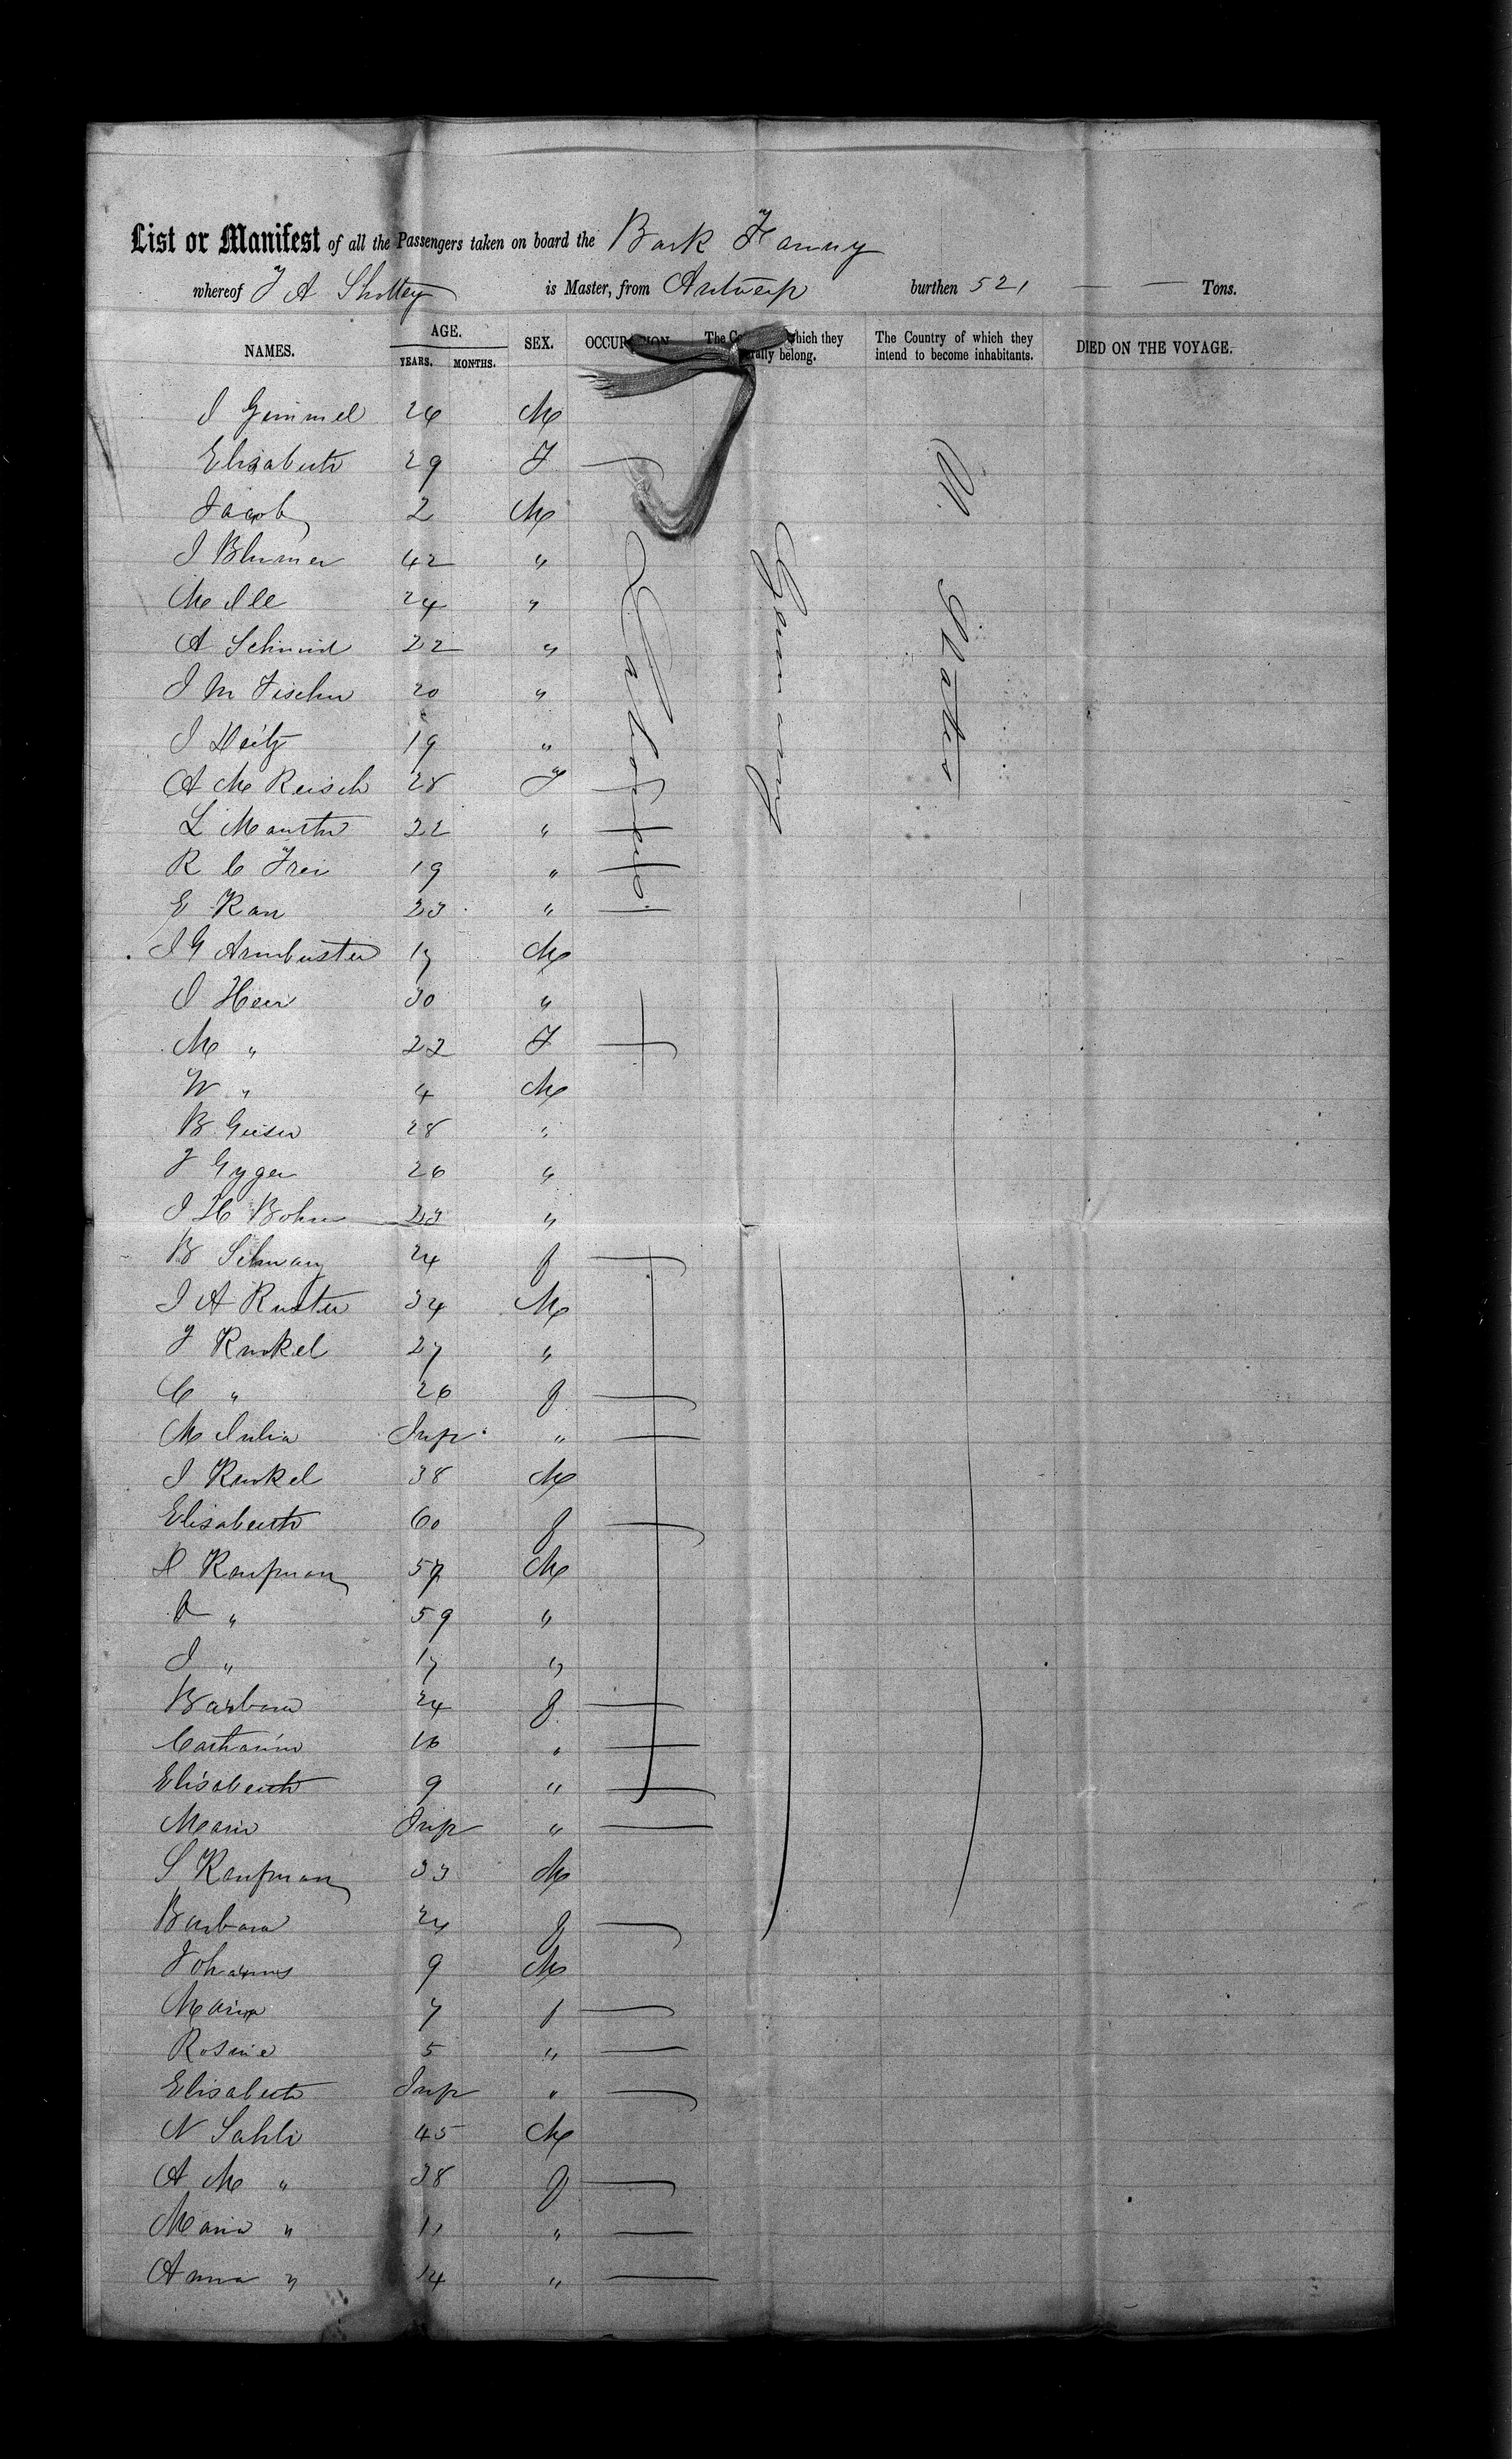 List or Manifest of all the Passengers taken on board the Bark Fanny
whereof J A is Master, from Antwerp burthen 521 Tons.
NAMES. AGE. YEARS. MONTHS. SEX. OCCUPATION The which they ally belong. The Country of which they intend to become inhabitants. DIED ON THE VOYAGE.
J Gimmel 26 M
Elisabeth 29 F
Jacob 2 M
J Blumer 42 "
M Ill 24 "
A Schmid 22 "
J M Fischer 20 "
J Deitz 19 "
A M Reisch 28 F
L 22 "
R C Frei 19 "
E Rau 23 "
J G Armbuster 17 M
J Heer 30 "
M " 22 F
W " 4 M
B Geiser 28 "
J Gyger 26 "
J H Bohm 23 "
B Schwarz 24 f
J A 34 M
J Runkel 27 "
C " 26 f
M Julia Inf "
J Runkel 38 M
Elisabeth 60 f
Kaufman 57 M
" 59 "
J " 17 "
Barbara 24 f
Catharine 16 "
Elisabeth 9 "
Maria Inf "
S Kaufman 33 M
Barbara 24 f
Johannes 9 M
Maria 7 f
Rosine 5 "
Elisabeth Inf "
N Sahli 45 M
A M " 38 f
Maria " 11 "
Anna " 14 "
Germany
U States